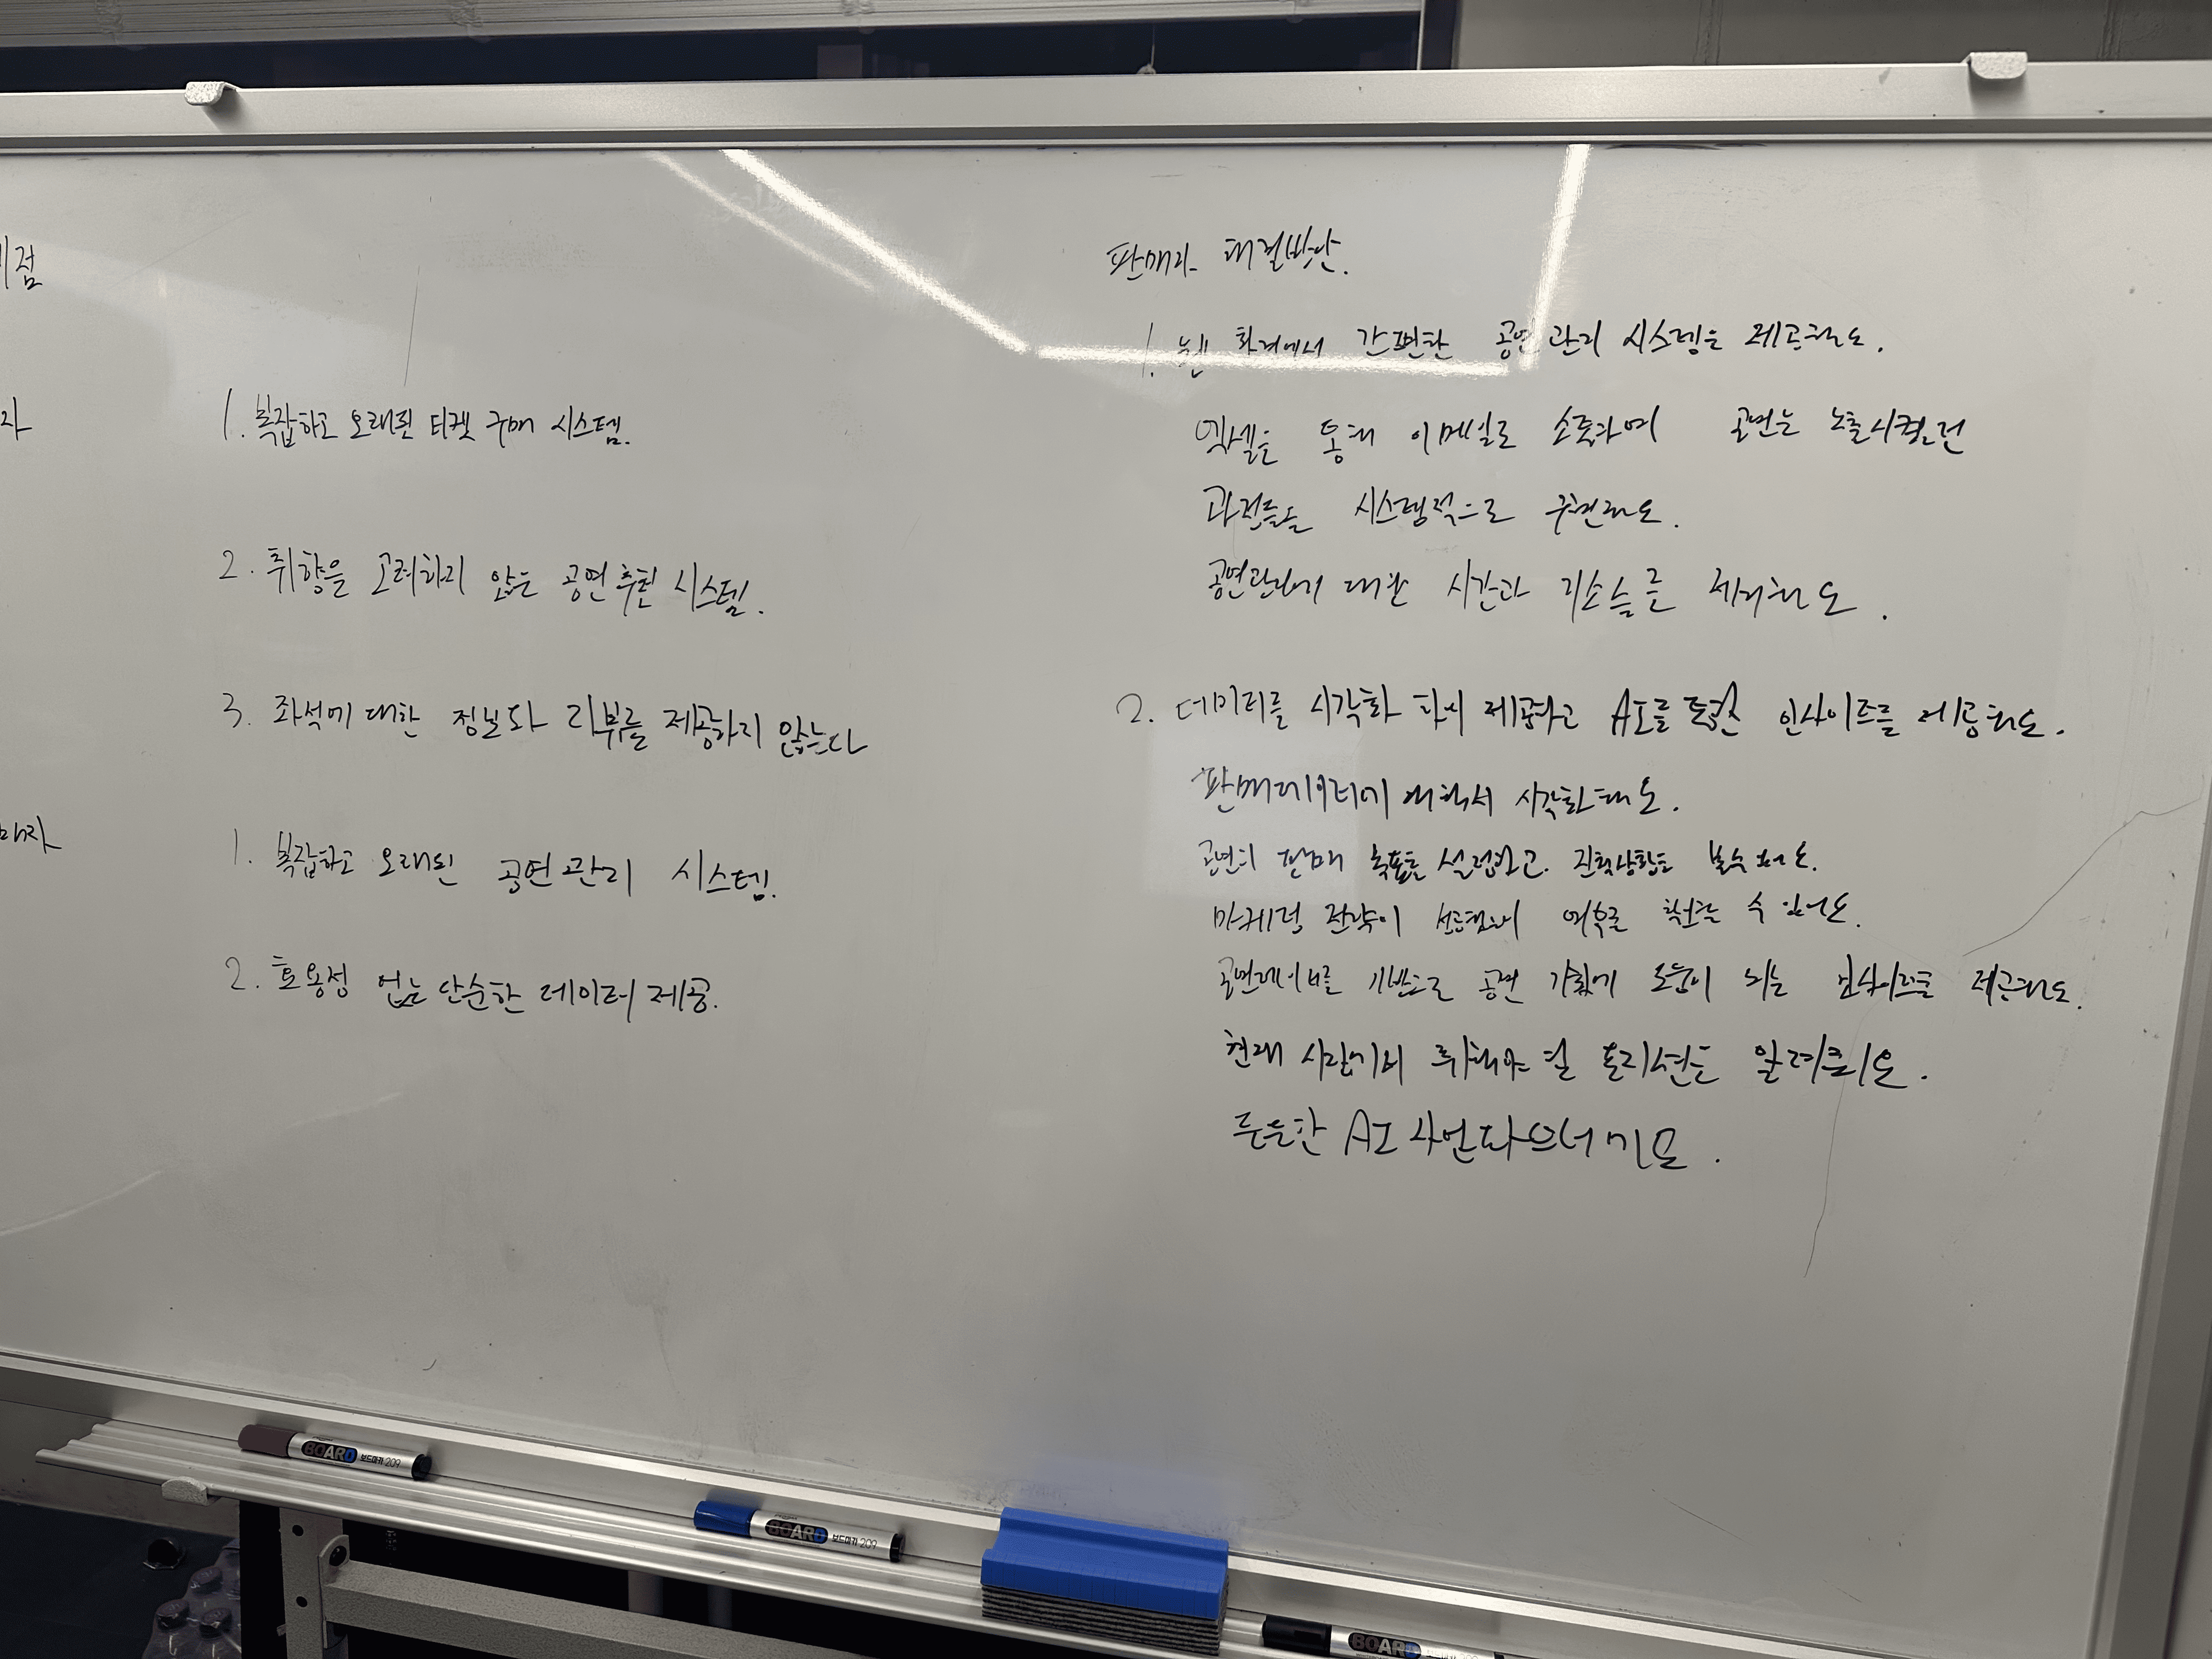 제점
자
1. 복잡하고 오래된 티켓 구매 시스템.
2. 취향을 고려하지 않는 공연 추천 시스템.
3. 좌석에 대한 정보와 리뷰를 제공하지 않는다
매자
1. 복잡하고 오래된 공연 관리 시스템.
2. 효용성 없는 단순한 데이터 제공.
판매자 해결방안.
1. 웹 환경에서 간편한 공연 관리 시스템을 제공해요.
엑셀을 통해 이메일로 소통하며 공연을 노출시켰던
과정들을 시스템적으로 구현해요.
공연관리에 대한 시간과 리소스를 제거해요.
2. 데이터를 시각화 하여 제공하고 AI를 통한 인사이트를 제공해요.
판매데이터에 대해서 시각화해요.
공연의 판매 목표를 설정하고. 진행상황을 볼수 있어요.
마케팅 전략이 성공했는지 여부를 확인할 수 있어요.
공연데이터를 기반으로 공연 기획에 도움이 되는 인사이트를 제공해요.
현재 시점에서 취해야 할 포지션을 알려줘요.
든든한 AI 사업파트너
BOARD 보드마카 209
BOARD 보드마카 209
BOARD